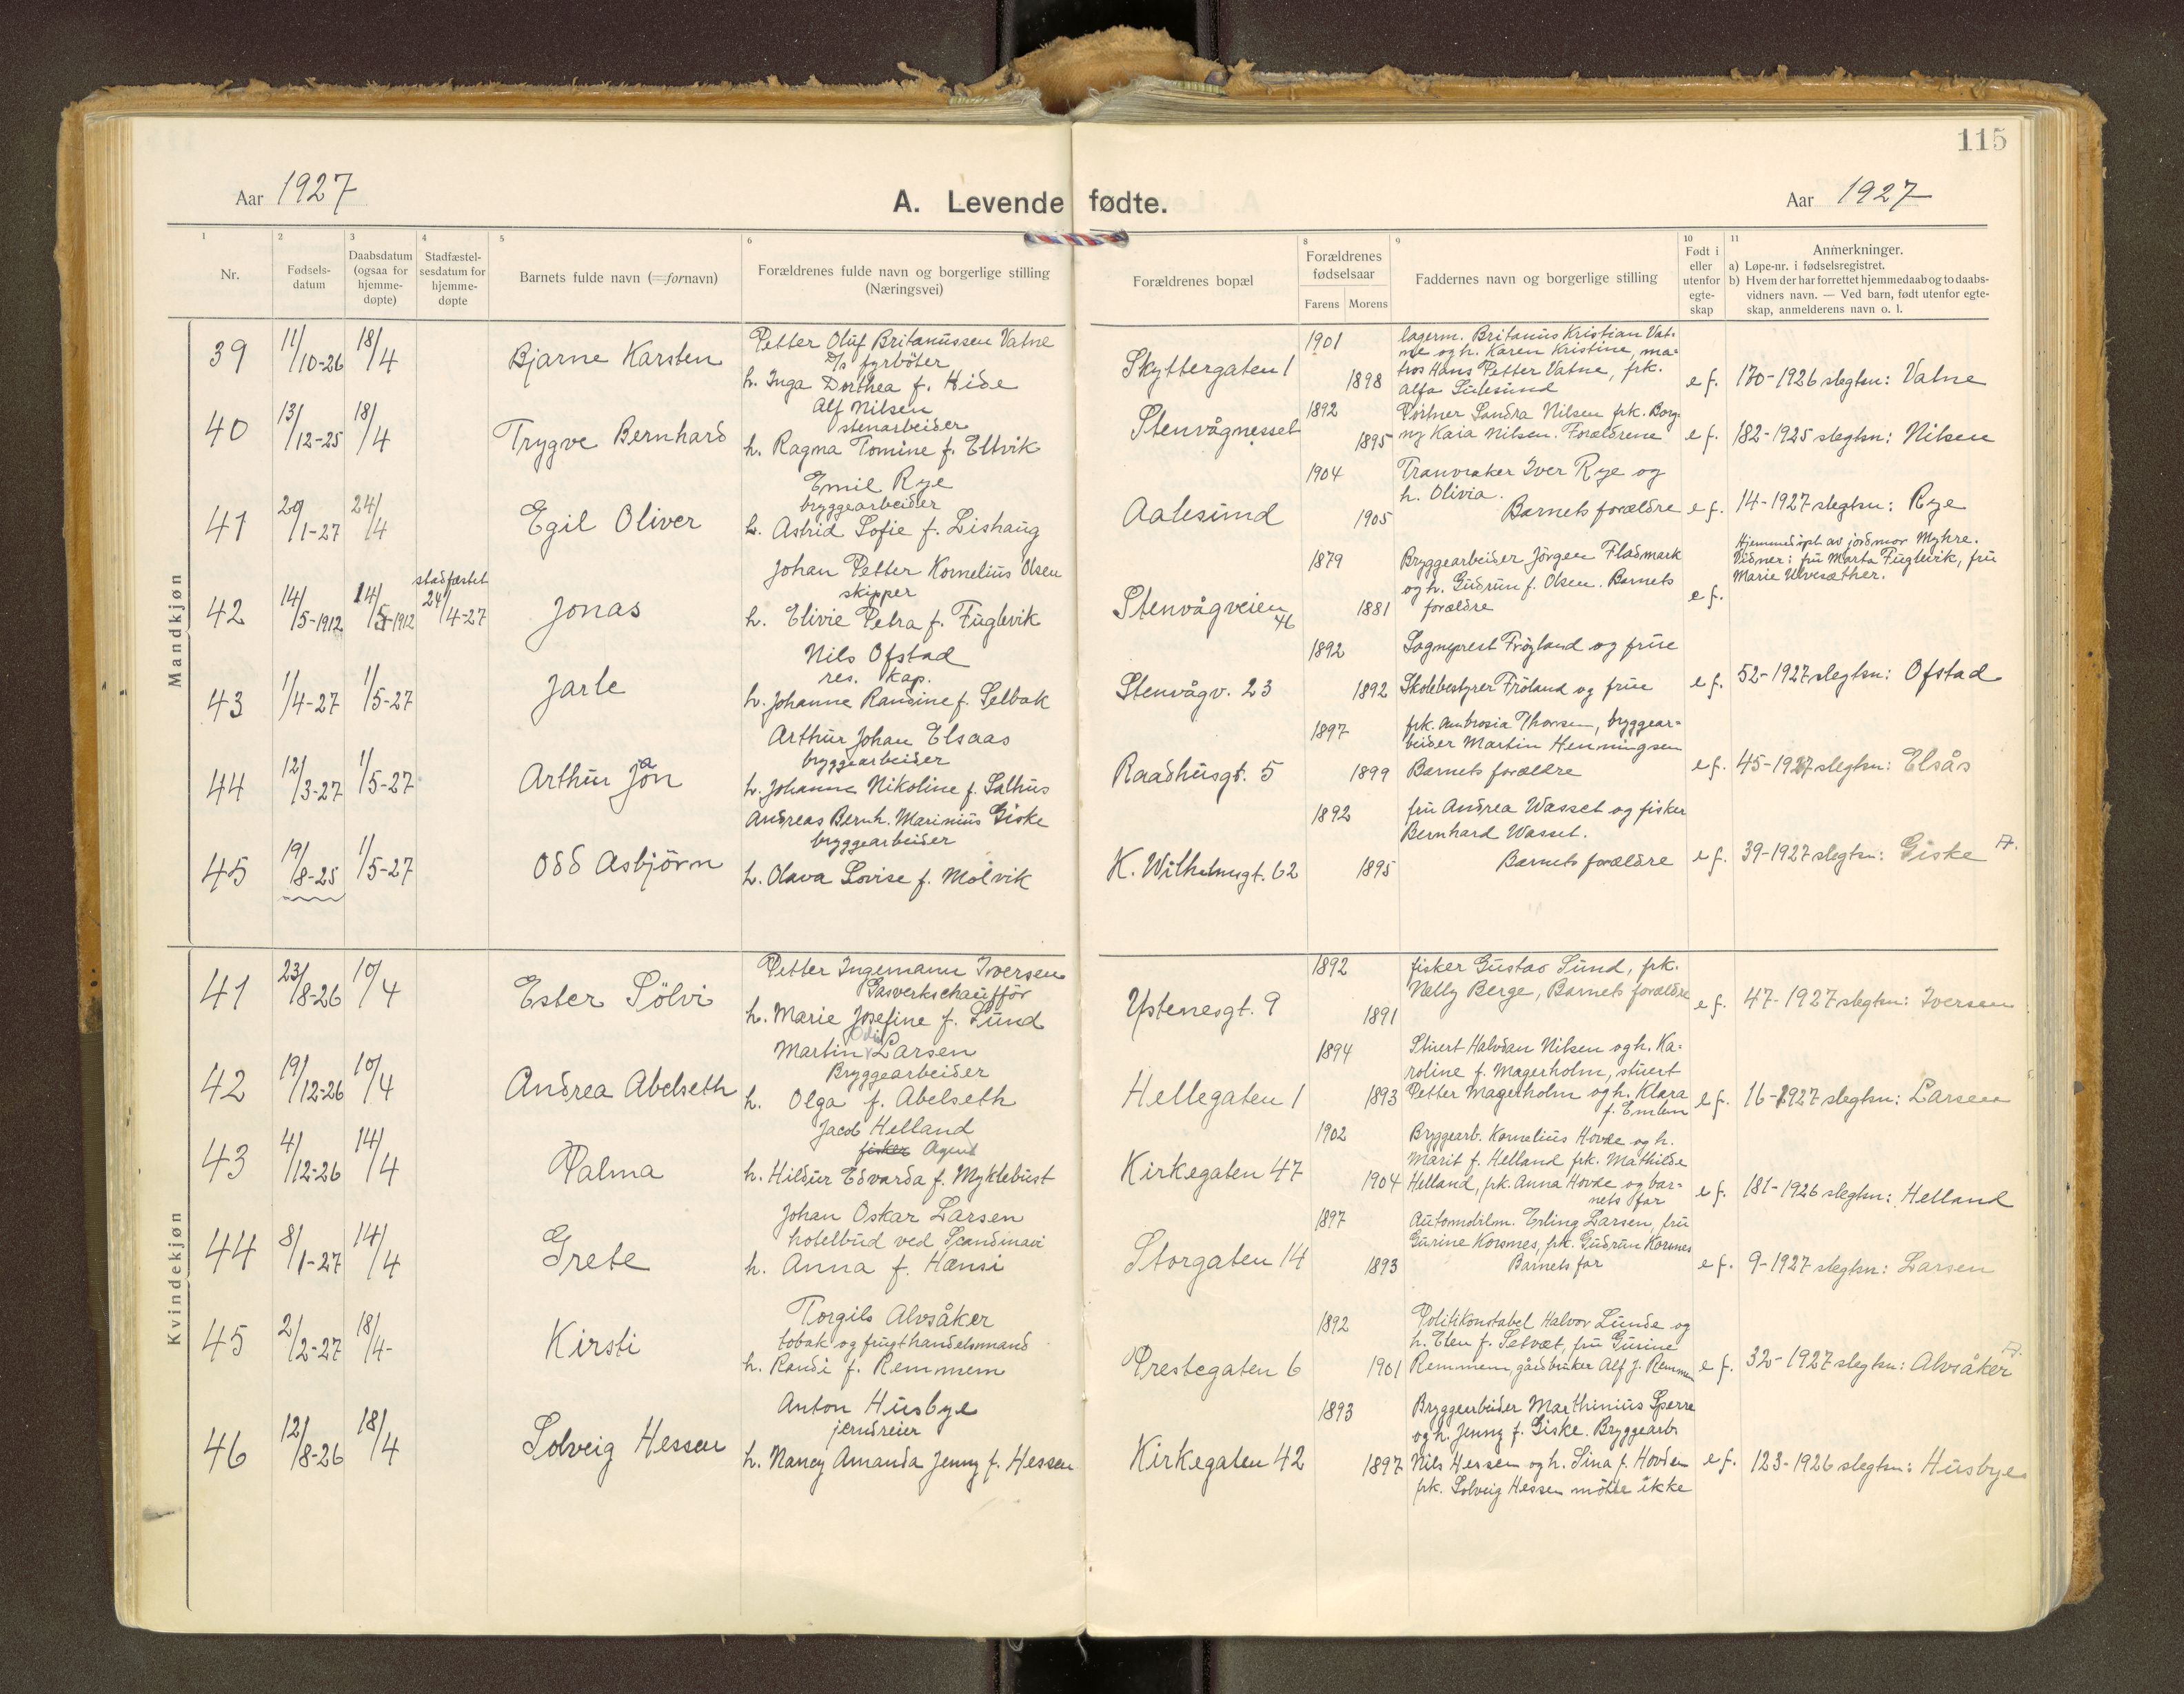 115
Aar 1927
A. Levende fødte.
Aar 1927
1
2
3
4
5
6
8
9
10
11
Nr.
Fødsels-
datum
Daabsdatum
(ogsaa for
hjemme-
døpte)
Stadfæstel-
sesdatum for
hjemme-
døpte
Barnets fulde navn (=fornavn)
Forældrenes fulde navn og borgerlige stilling
(Næringsvei)
Forældrenes bopæl
Forældrenes
fødselsaar
Farens Morens
Faddernes navn og borgerlige stilling
Født i
eller
utenfor
egte-
skap
Anmerkninger.
a) Løpe-nr. i fødselsregistret.
b) Hvem der har forrettet hjemmedaab og to daabs-
vidners navn. — Ved barn, født utenfor egte-
skap, anmelderens navn o. l.
Mandkjøn
39
11/10-26
18/4
Bjarne Karsten
Petter Oluf Britanussen Vatne
D/s fyrböter
h. Inga Dorthea f. Hide
Skyttergaten 1
1901
1898
lagerm. Britanus Kristian Vat-
ne og h. Karen Kristine, ma-
tros Hans Petter Vatne, frk.
Alfa Sulesund
e f.
170-1926 slegtsn: Vatne
40
13/12-25
18/4
Trygve Bernhard
Alf Nilsen
stenarbeider
h. Ragna Tomine f. Eltvik
Stenvågnesset
1892
1895
Portner Sandra Nilsen frk. Borg-
ny Kaia Nilsen. Forældrene
e f.
182-1925 slegtsn: Nilsen
41
20/1-27
24/4
Egil Oliver
Emil Rye
bryggearbeider
h. Astrid Sofie f. Lishaug
Aalesund
1904
1905
Tranvraker Iver Rye og
h. Olivia.
Barnets forældre
e f.
14-1927 slegtsn: Rye
42
14/5-1912
14/5-1912
stadfæstet
24/4-27
Jonas
Johan Petter Kornelius Olsen
skipper
h. Elivie Petra f. Fuglevik
Stenvågveien
46
1879
1881
Bryggearbeider Jörgen Fladmark
og h. Gudrun f. Olsen. Barnets
forældre
e f.
Hjemmedöpt av jordmor Myhre.
Vidner: fru Marta Fuglevik, fru
Marie Ulvesæther.
43
1/4-27
1/5-27
Jarle
Nils Ofstad
res. kap.
h. Johanne Randine f. Selbak
Stenvågv. 23
1892
1892
Sogneprest Fröyland og frue
Skolebestyrer Fröland og frue
e f.
52-1927 slegtsn: Ofstad
44
12/3-27
1/5-27
Arthur Jon
Arthur Johan Elsaas
bryggearbeider
h. Johanne Nikoline f. Salhus
Raadhusgt. 5
1897
1899
frk. Ambrosia Thorsen, bryggear-
beider Martin Henningsen
Barnets forældre
e f.
45-1927 slegtsn: Elsås
45
19/8-25
1/5-27
Odd Asbjörn
Andreas Bernh. Marinius Giske
bryggearbeider
h. Olava Lovise f. Molvik
K. Wilhelmsgt. 62
1892
1895
fru Andrea Wasset og fisker
Bernhard Wasset.
Barnets forældre
e f.
39-1927 slegtsn: Giske
Kvindekjøn
41
23/8-26
10/4
Ester Sölvi
Petter Ingemann Iversen
Gasverkschaufför
h. Marie Josefine f. Sund
Ystenesgt. 9
1892
1891
fisker Gustav Sund, frk.
Nelly Berge, Barnets forældre
e f.
47-1927 slegtsn: Iversen
42
19/12-26
10/4
Andrea Abelseth
Martin Larsen
Bryggearbeider
h. Olga f. Abelseth
Hellegaten 1
1894
1893
Stuert Halvdan Nilsen og h. Ka-
roline f. Magerholm, stuert
Petter Magerholm og h. Klara
f. Emlem
e f.
16-1927 slegtsn: Larsen
43
4/12-26
14/4
Palma
Jacob Helland
fisker Agent
h. Hildur Edvarda f. Myklebust
Kirkegaten 47
1902
1904
Bryggearb. Kornelius Hovde og h.
Marit f. Helland frk. Mathilde
Helland, frk. Anna Hovde og bar-
nets far
e f.
181-1926 slegtsn: Helland
44
8/1-27
14/4
Grete
Johan Oskar Larsen
hotelbud ved Scandinavi
h. Anna f. Hansi
Storgaten 14
1897
1893
Automobilm. Erling Larsen, fru
Gurine Korsnes, frk. Gudrun Korsnes
Barnets far
e f.
9-1927 slegtsn: Larsen
45
2/2-27
18/4-
Kirsti
Torgils Alvsåker
tobak og frugthandelsmand
h. Randi f. Remmem
Prestegaten 6
1892
1901
Politikonstabel Halvor Lunde og
h. Elen f. Setvat, fru Gurine
Remmem, gårdbruker Alf J. Remmem
e f.
32-1927 slegtsn: Alvsåker
46
12/8-26
18/4
Solveig Hessen
Anton Husbye
jerndreier
h. Nancy Amanda Jenny f. Hessen
Kirkegaten 42
1893
1897
Bryggearbeider Marthinius Sperre
og h. Jenny f. Giske. Bryggearb.
Nils Hessen og h. Sina f. Hovden
frk. Solveig Hessen mötte ikke
e f.
123-1926 slegtsn: Husbye